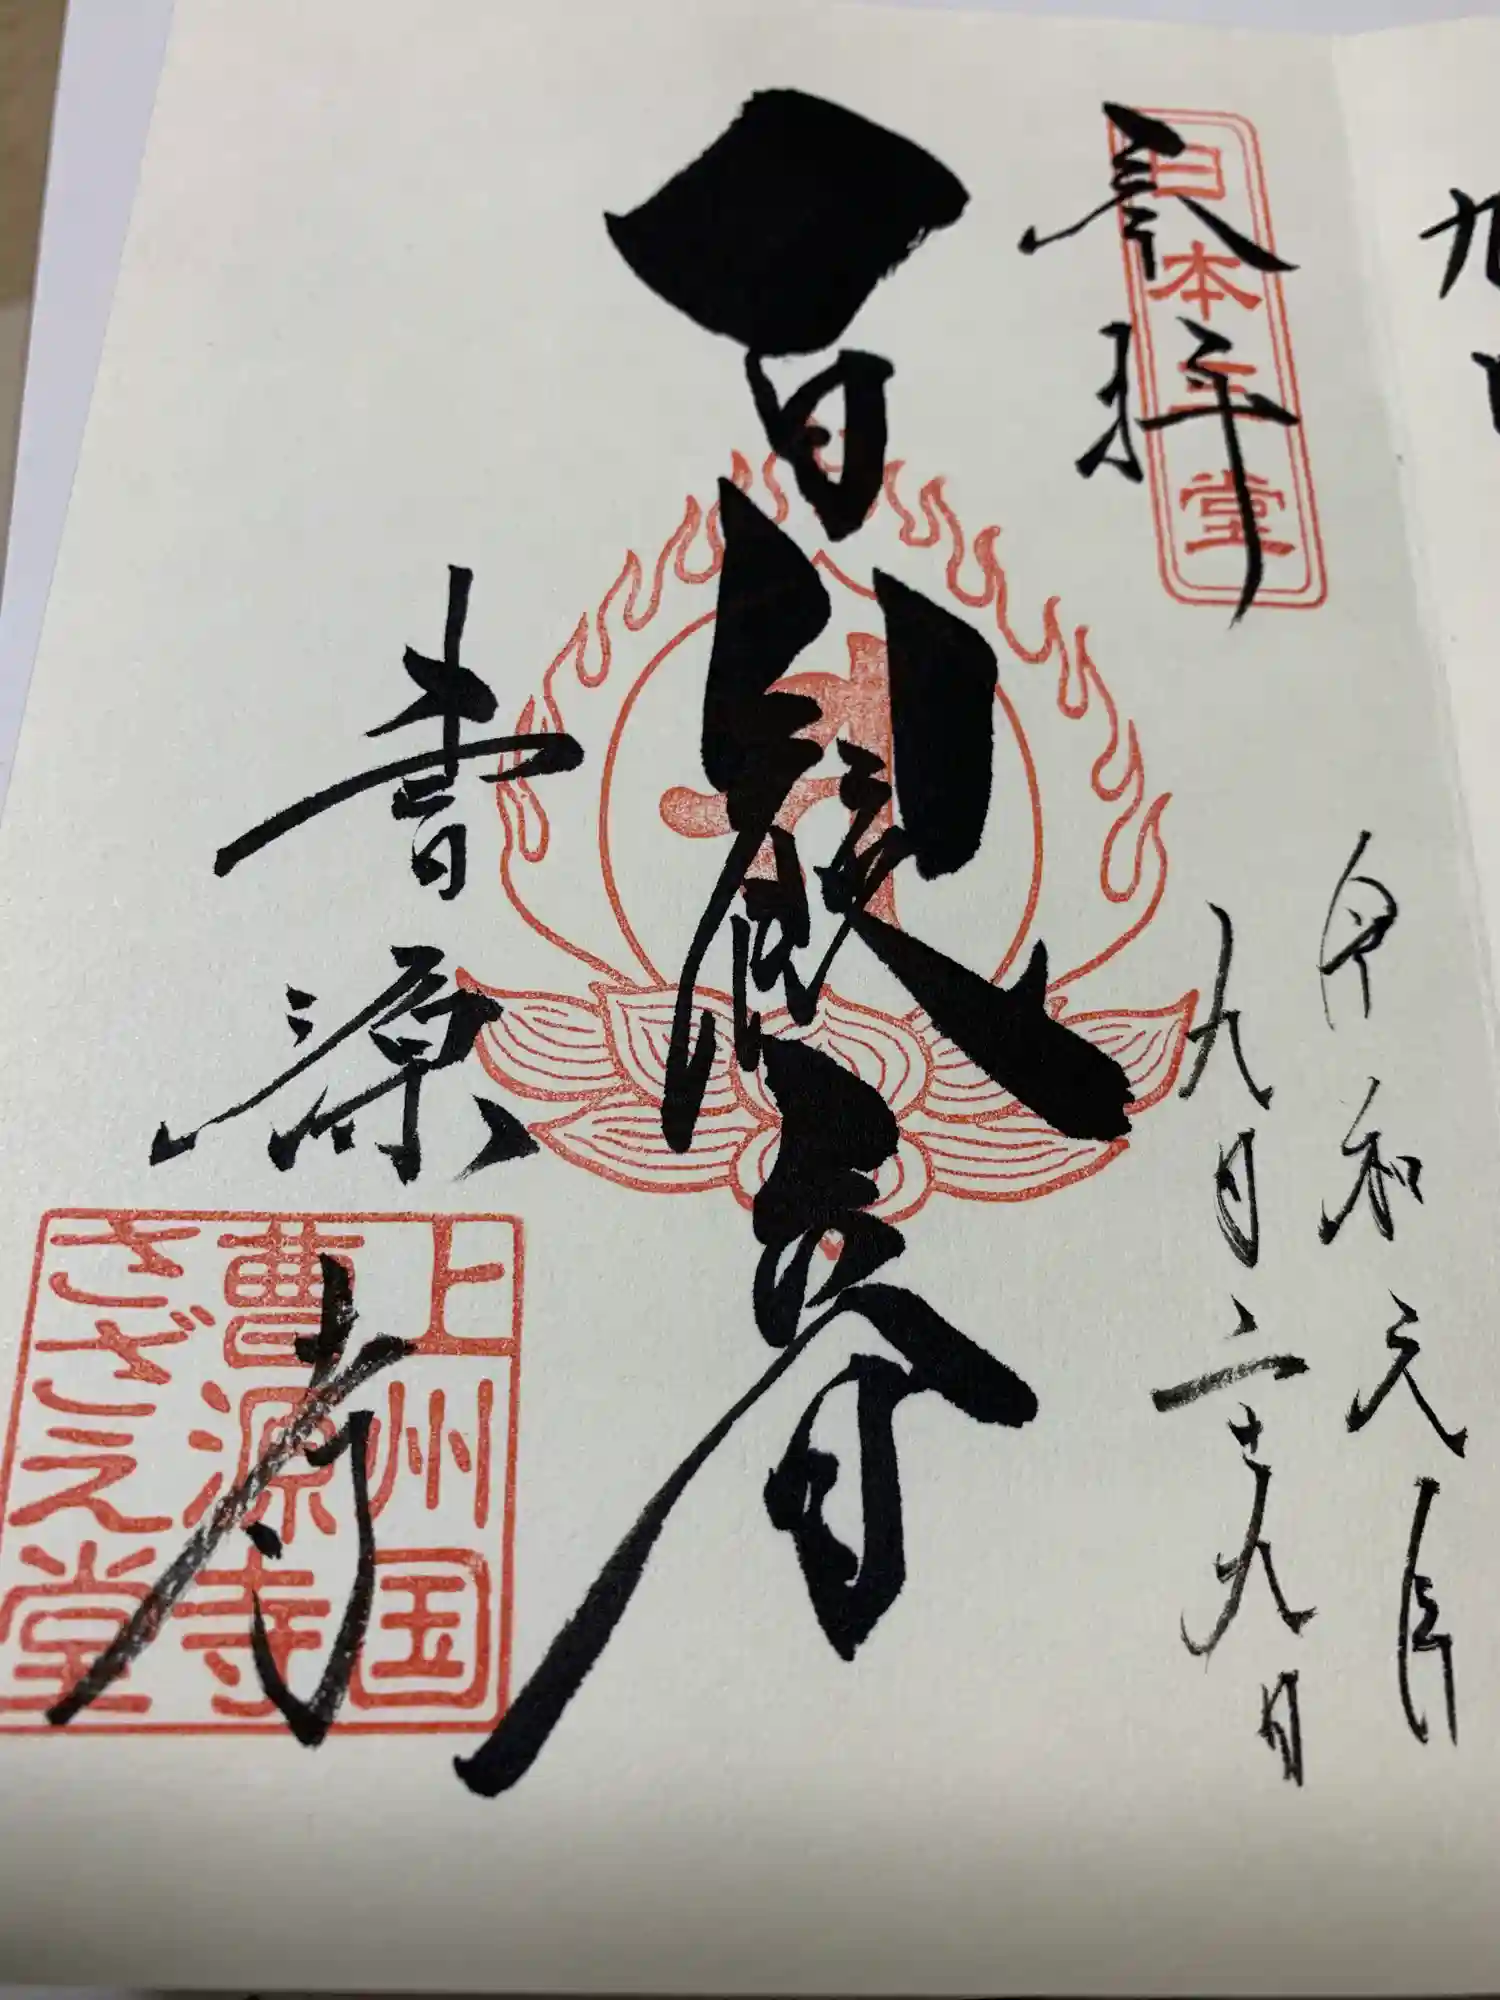 奉拝
日本三堂
令和元年
九月二十九日
百観音
曹源寺
上州国
曹源寺
さざえ堂